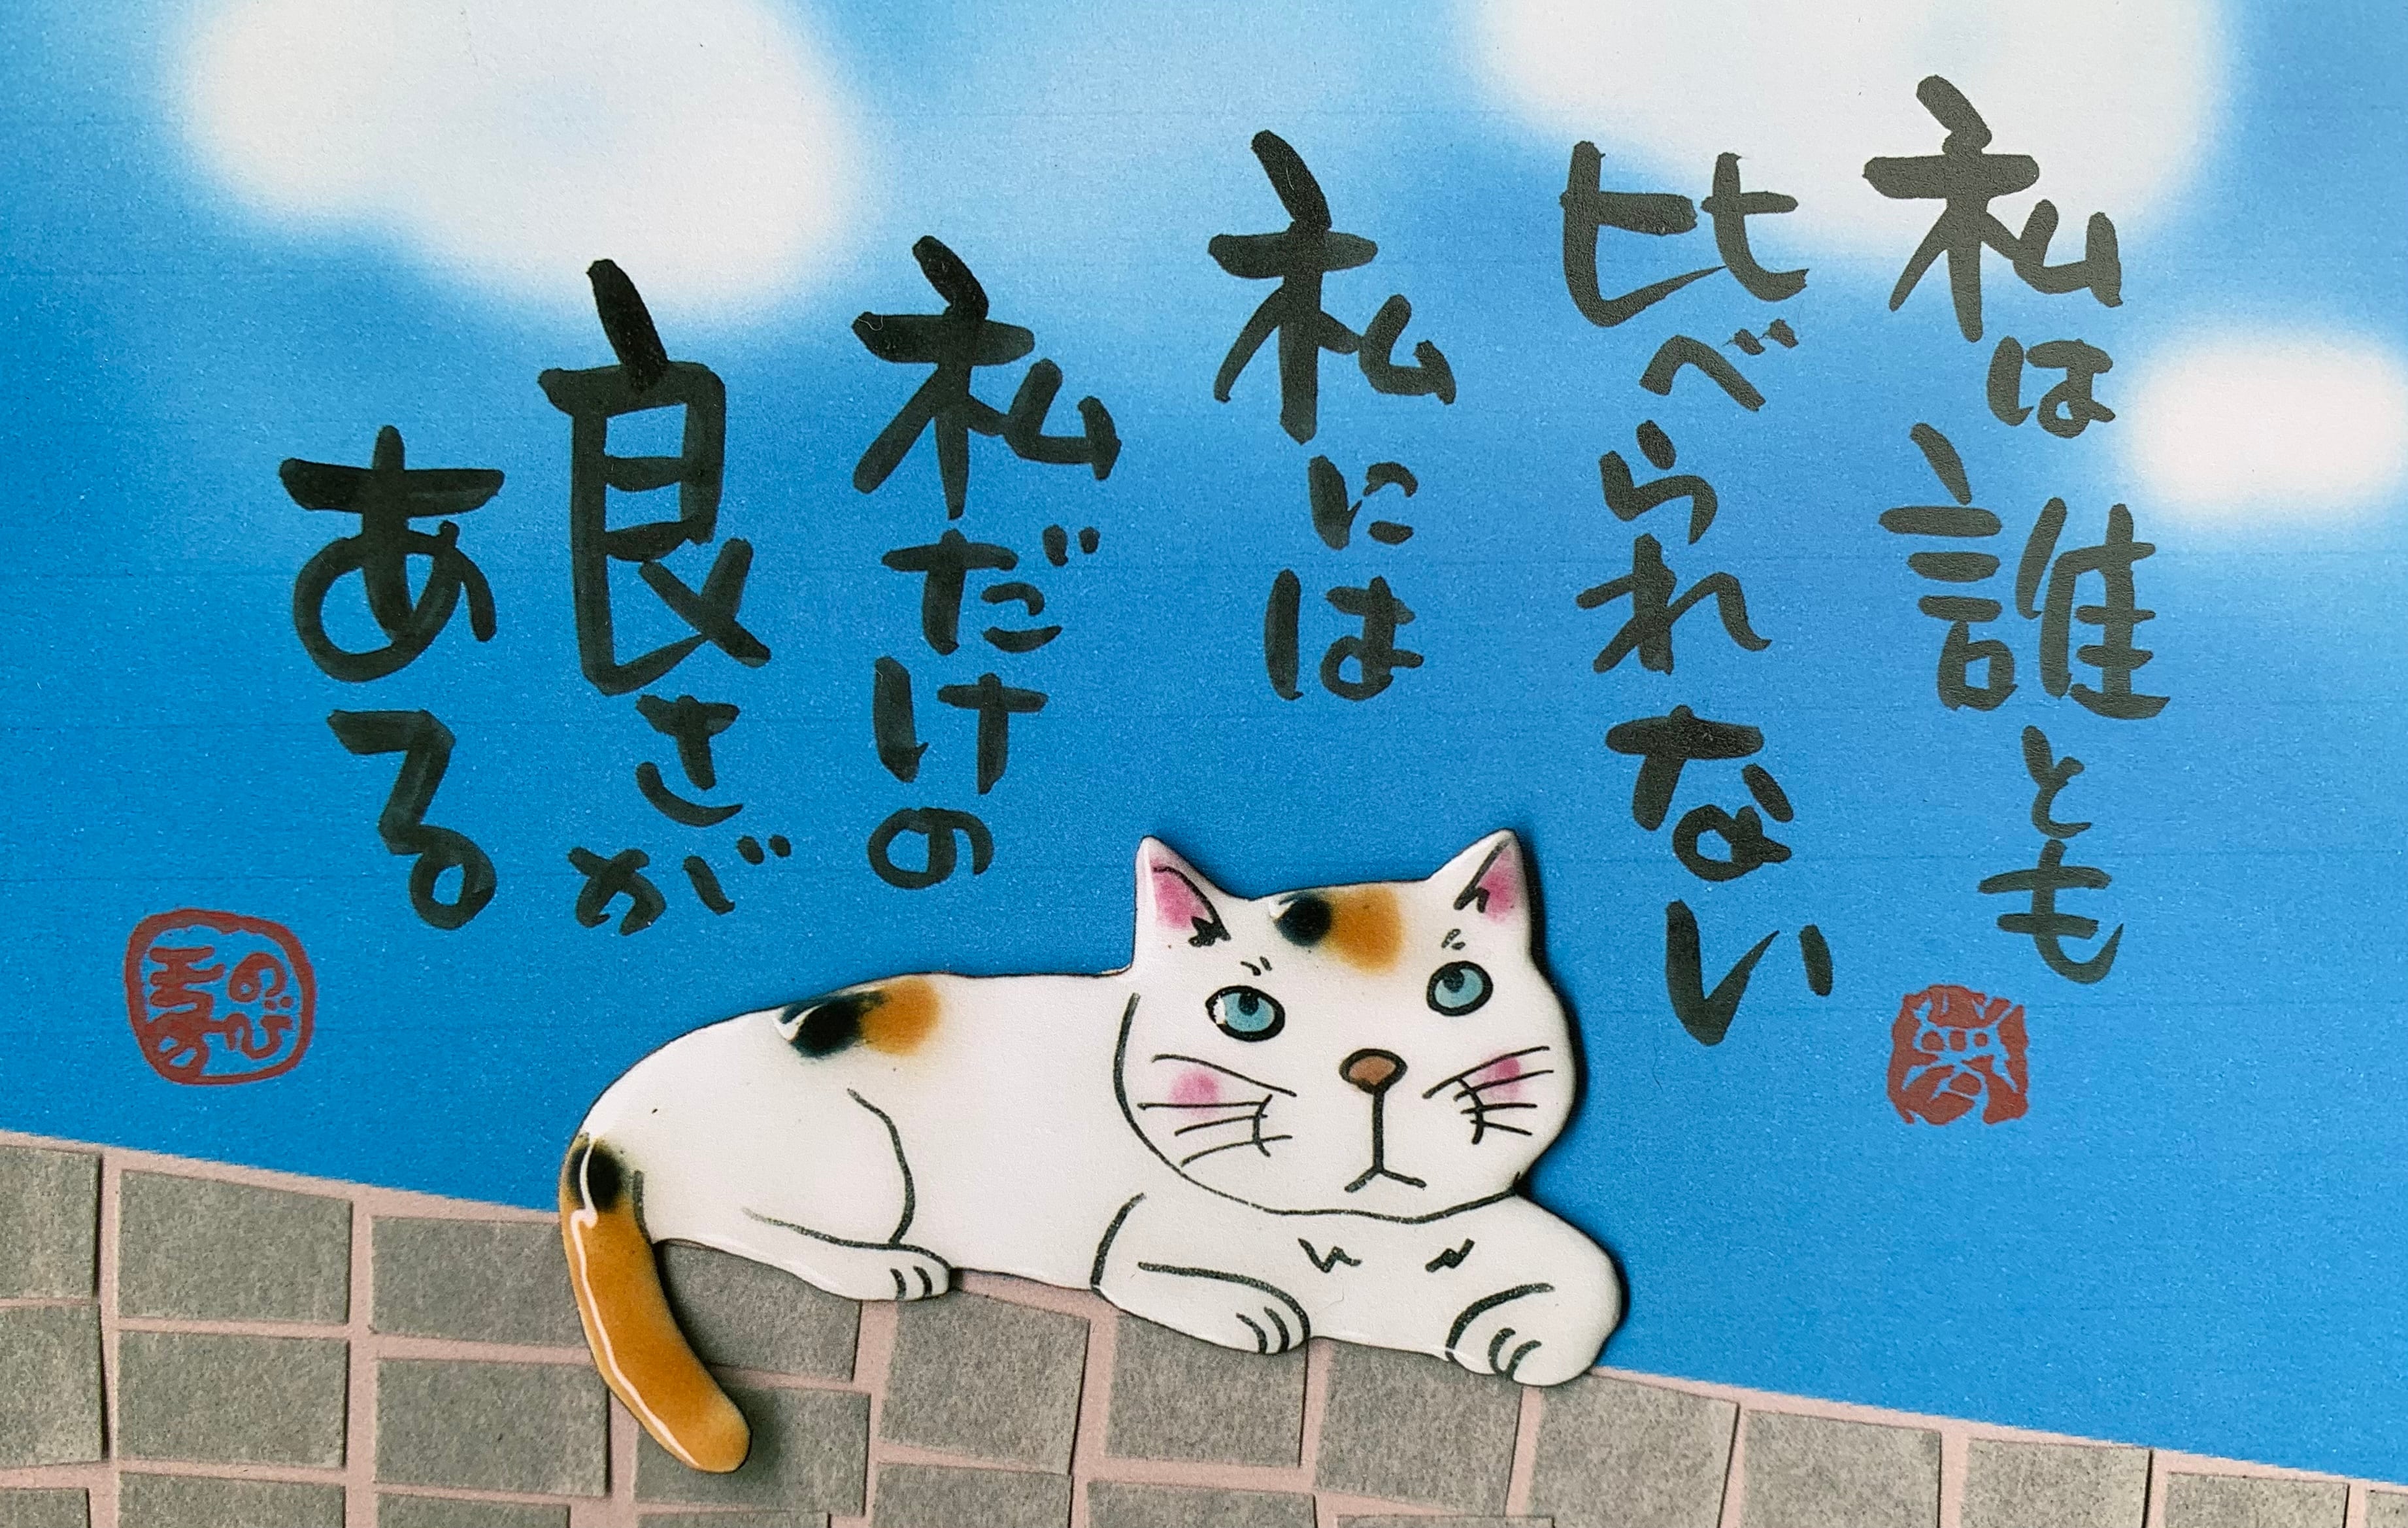 私は誰とも
比べられない
私には
私だけの
良さが
ある